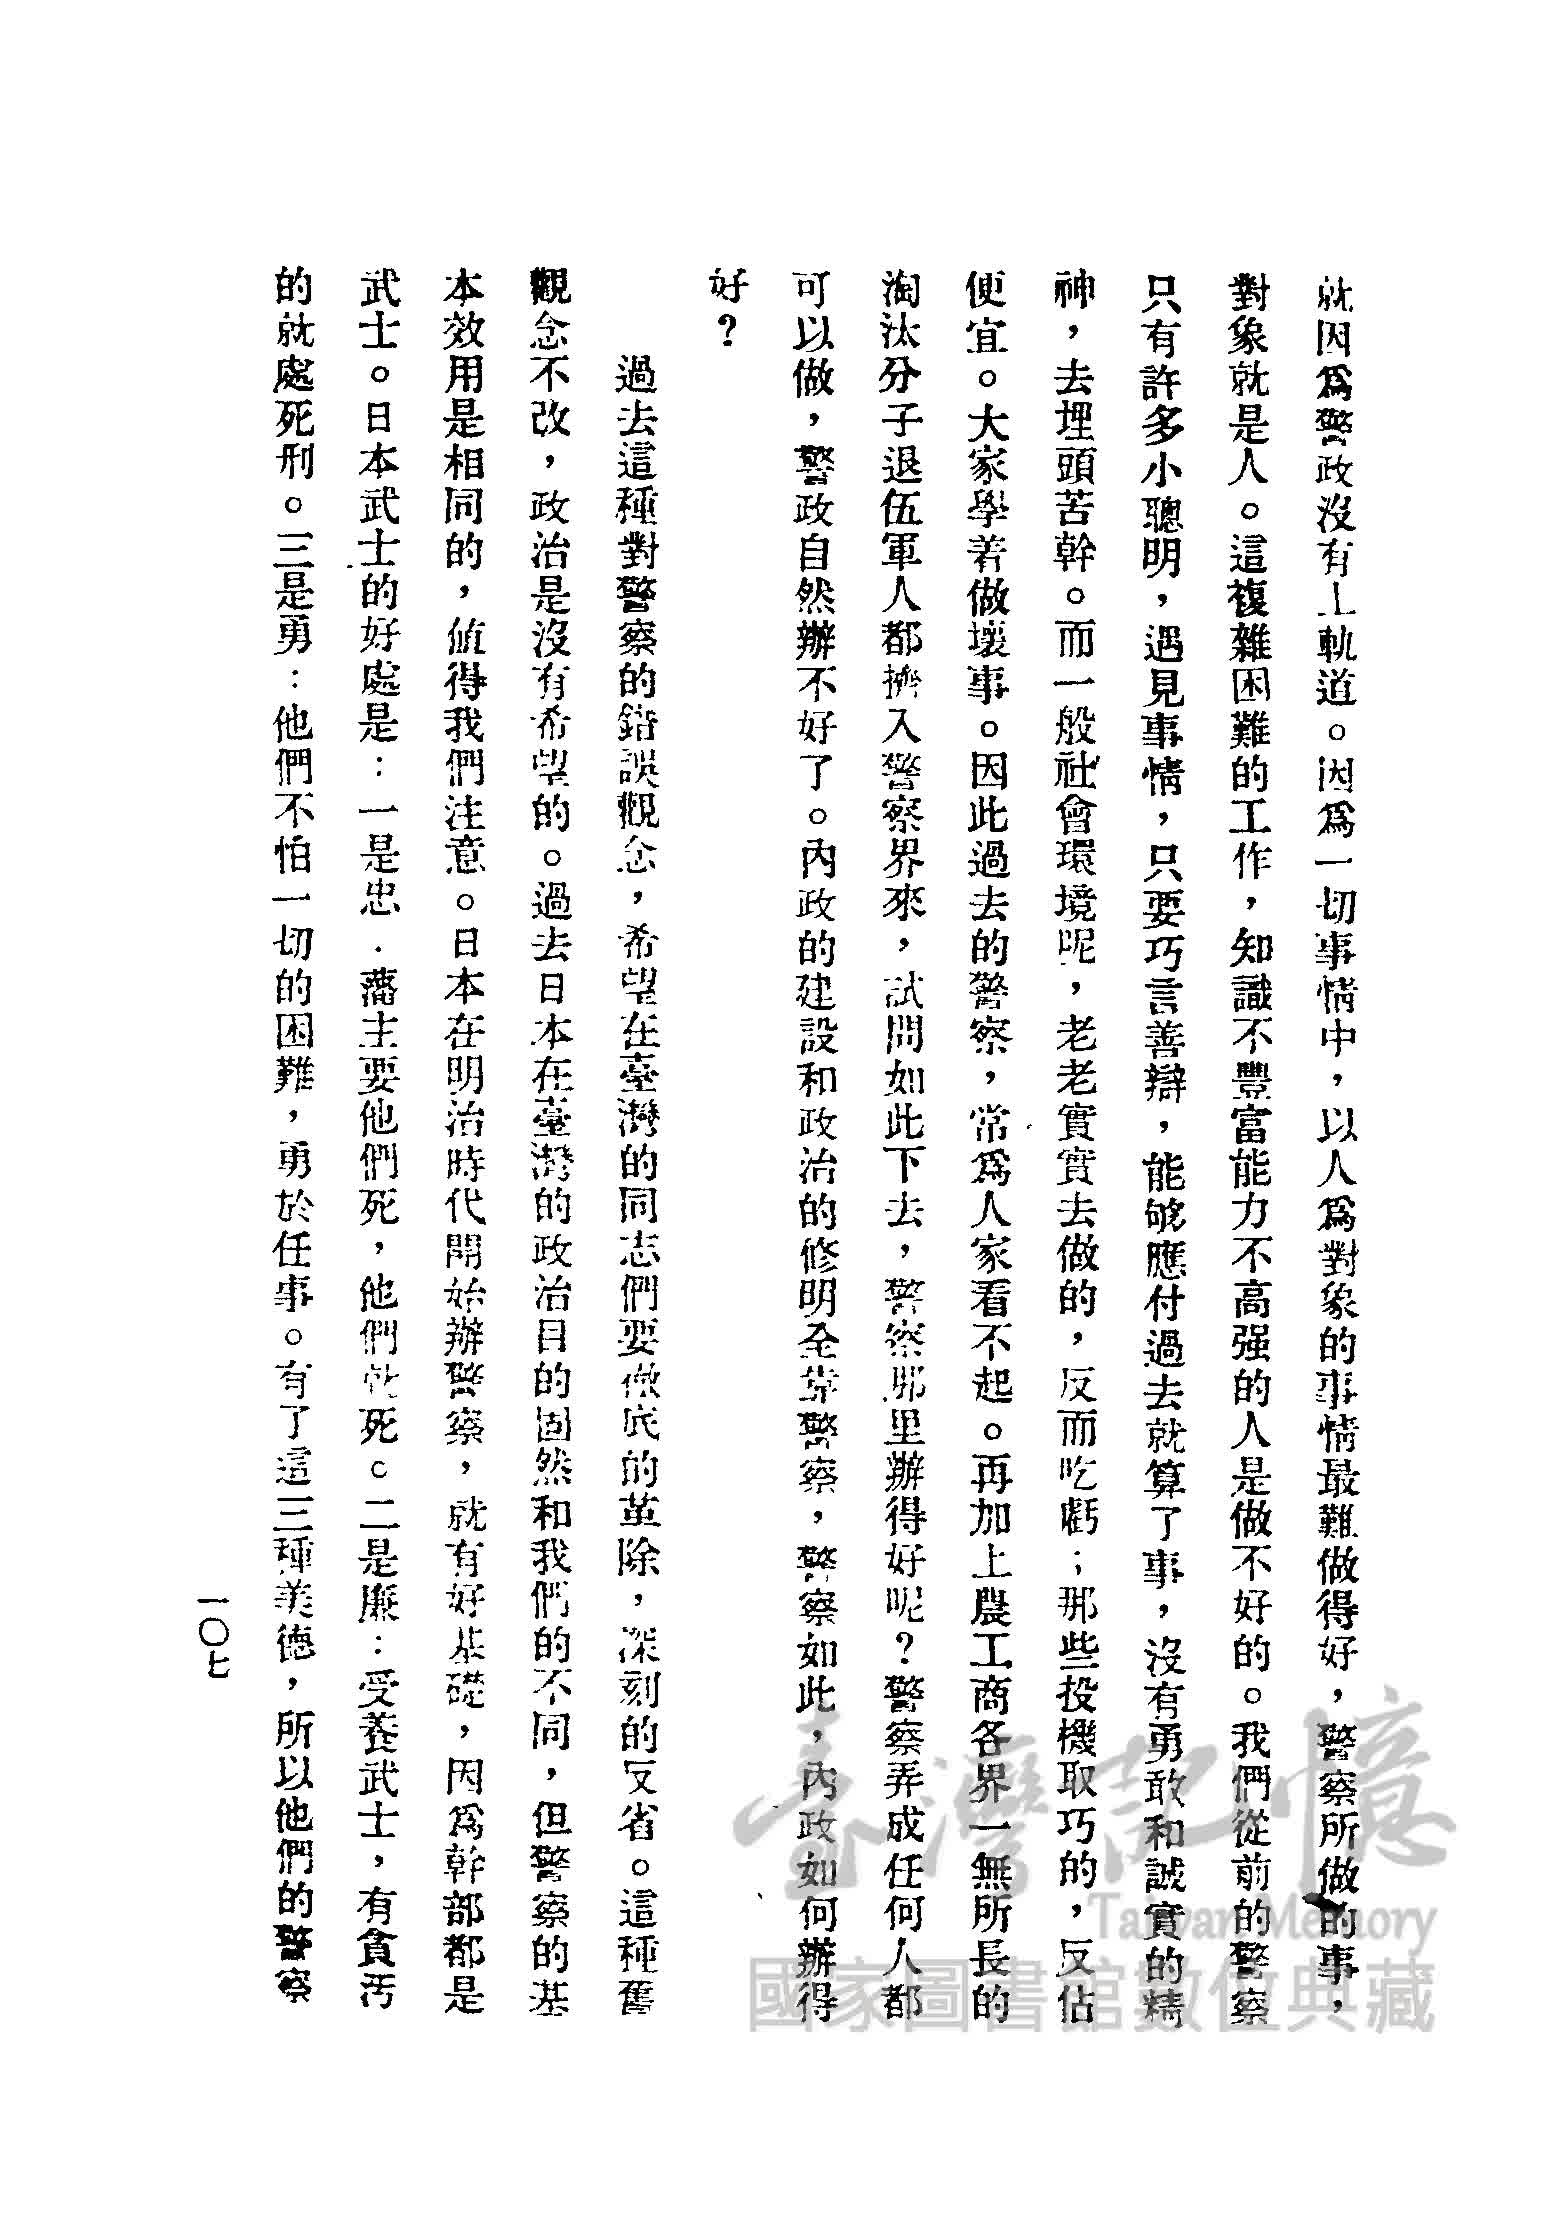 就因爲警政沒有上軌道。因爲一切事情中，以人爲對象的事情最難做得好，警察所做的事，
對象就是人。這複雜困難的工作，知識不豐富能力不高强的人是做不好的。我們從前的警察
只有許多小聰明，遇見事情，只要巧言善辯，能够應付過去就算了事，沒有勇敢和誠實的精
神，去埋頭苦幹。而一般社會環境呢，老老實實去做的，反而吃虧；那些投機取巧的，反佔
便宜。大家學着做壞事。因此過去的警察，常爲人家看不起。再加上農工商各界一無所長的
淘汰分子退伍軍人都擠入警察界來，試問如此下去，警察那里辦得好呢？警察弄成任何人都
可以做，警政自然辦不好了。內政的建設和政治的修明全靠警察，警察如此，內政如何辦得
好？
過去這種對警察的錯誤觀念，希望在臺灣的同志們要澈底的革除，深刻的反省。這種舊
觀念不改，政治是沒有希望的。過去日本在臺灣的政治目的固然和我們的不同，但警察的基
本效用是相同的，値得我們注意。日本在明治時代開始辦警察，就有好基礎，因爲幹部都是
武士。日本武士的好處是：一是忠．藩主要他們死，他們就死。二是廉：受養武士，有貪汚
的就處死刑。三是勇：他們不怕一切的困難，勇於任事。有了這三種美德，所以他們的警察
一〇七
臺灣記憶
Taiwan Memory
國家圖書館數位典藏